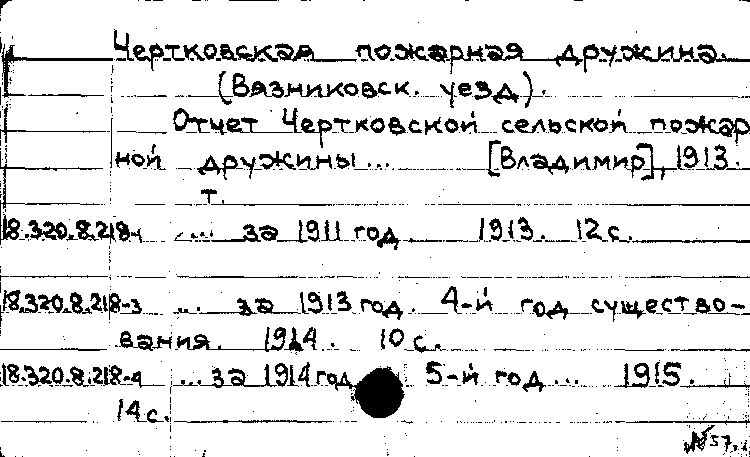 Чертковская пожарная дружина.
(Вязниковск. уезд).
Отчет Чертковской сельской пожар
ной дружины... [Владимир], 1913.
т.
18.320.8.218-4 ... за 1911 год 1913. 12 с.
18.320.8.218-3 ... за 1913 год. 4-й год существо-
вания. 1914. 10 с.
18.320.8.218-4 ... за 1914 год 5-й год... 1915.
14 с.